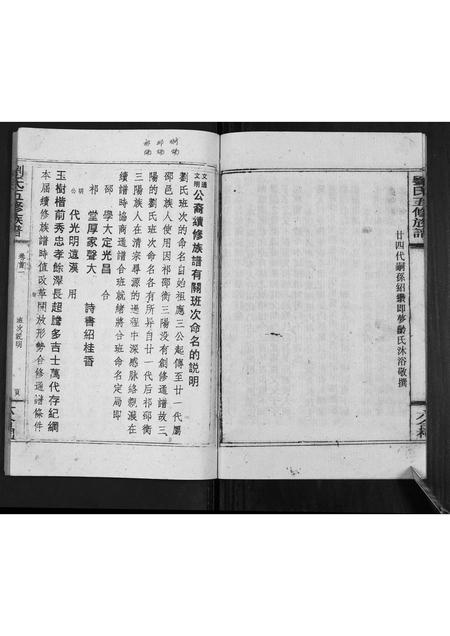 廿四代嗣孫紹
即夢齡氏沐浴敬撰
劉氏五修族譜
卷首二
班次説明
頁
文通
文明 公裔續修族譜有關班次命名的説明
劉氏班次的命名自始祖應三公起傳至廿一代屬
邵邑族人使用因祁邵衡三陽没有創修通譜故三
陽的劉氏班次命名各有所异自廿一代后祁邵衡
三陽族人在清宗尋源的過程中深感脉絡親㵎在
續譜時協商通譜合班就緒將合班命名定局即
邵 學大定光昌 合
祁 堂厚家聲大 詩書紹桂香
明公 代光明遠漢 用
玉樹楷前秀忠孝餘澤長超譫多吉士萬代存紀綱
本届續修族譜時值改革開放形勢合修通譜條件